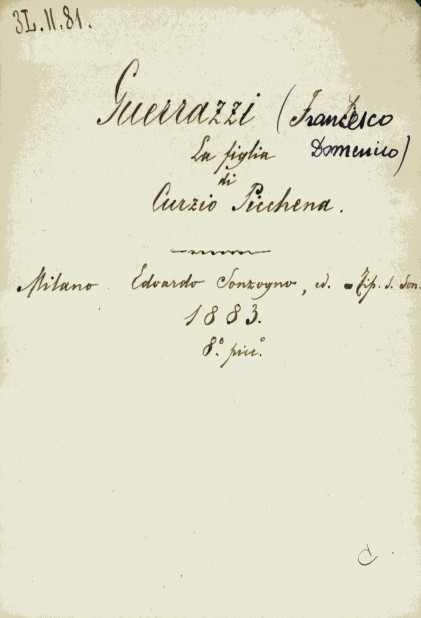 3L.II.81.
Guerrazzi (Francesco
Domenico)
La figlia
di
Curzio Picchena.
Milano Edoardo Sonzogno, ed. - Tip. d. Son.
1883.
8.° picc.°
C